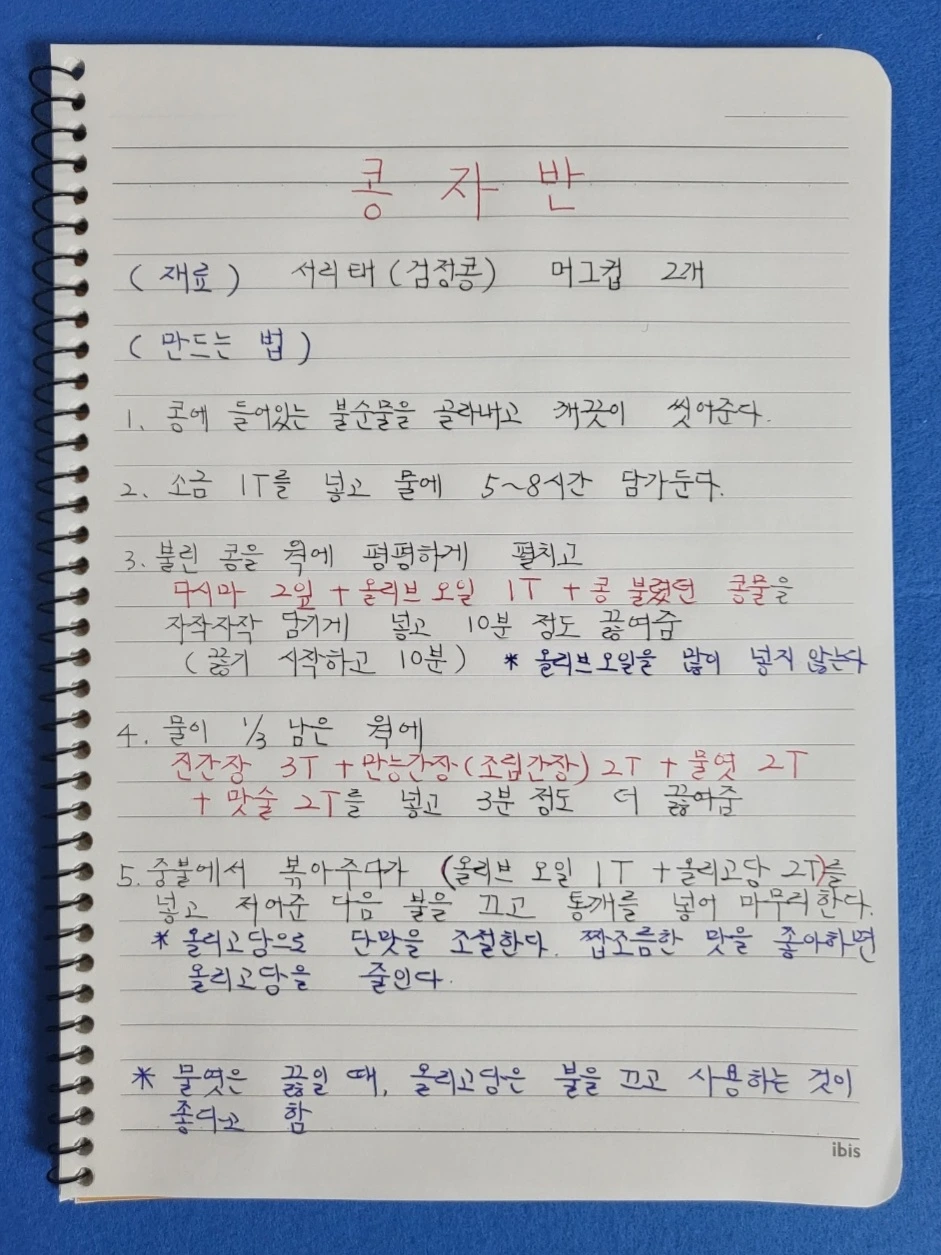 콩 자 반
(재료) 서리태(검정콩) 머그컵 2개
(만드는 법)
1. 콩에 들어있는 불순물을 골라내고 깨끗이 씻어준다.
2. 소금 1T를 넣고 물에 5~8시간 담가둔다.
3. 불린 콩을 웍에 평평하게 펼치고
다시마 2잎 + 올리브 오일 1T + 콩 불렸던 콩물을
자작자작 담기게 넣고 10분 정도 끓여줌
(끓기 시작하고 10분) * 올리브오일을 많이 넣지 않는다
4. 물이 1/3 남은 웍에
진간장 3T + 만능간장(조림간장) 2T + 물엿 2T
+ 맛술 2T를 넣고 3분 정도 더 끓여줌
5. 중불에서 볶아주다가 (올리브 오일 1T + 올리고당 2T)를
넣고 저어준 다음 불을 끄고 통깨를 넣어 마무리한다.
* 올리고당으로 단맛을 조절한다. 짭조름한 맛을 좋아하면
올리고당을 줄인다.
* 물엿은 끓일 때, 올리고당은 불을 끄고 사용하는 것이
좋다고 함
ibis